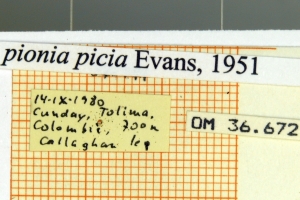 pionia picia Evans, 1951
14-IX-1980
Cunday, Tolima,
Colombia, 700m
Callaghan leg
OM 36.672